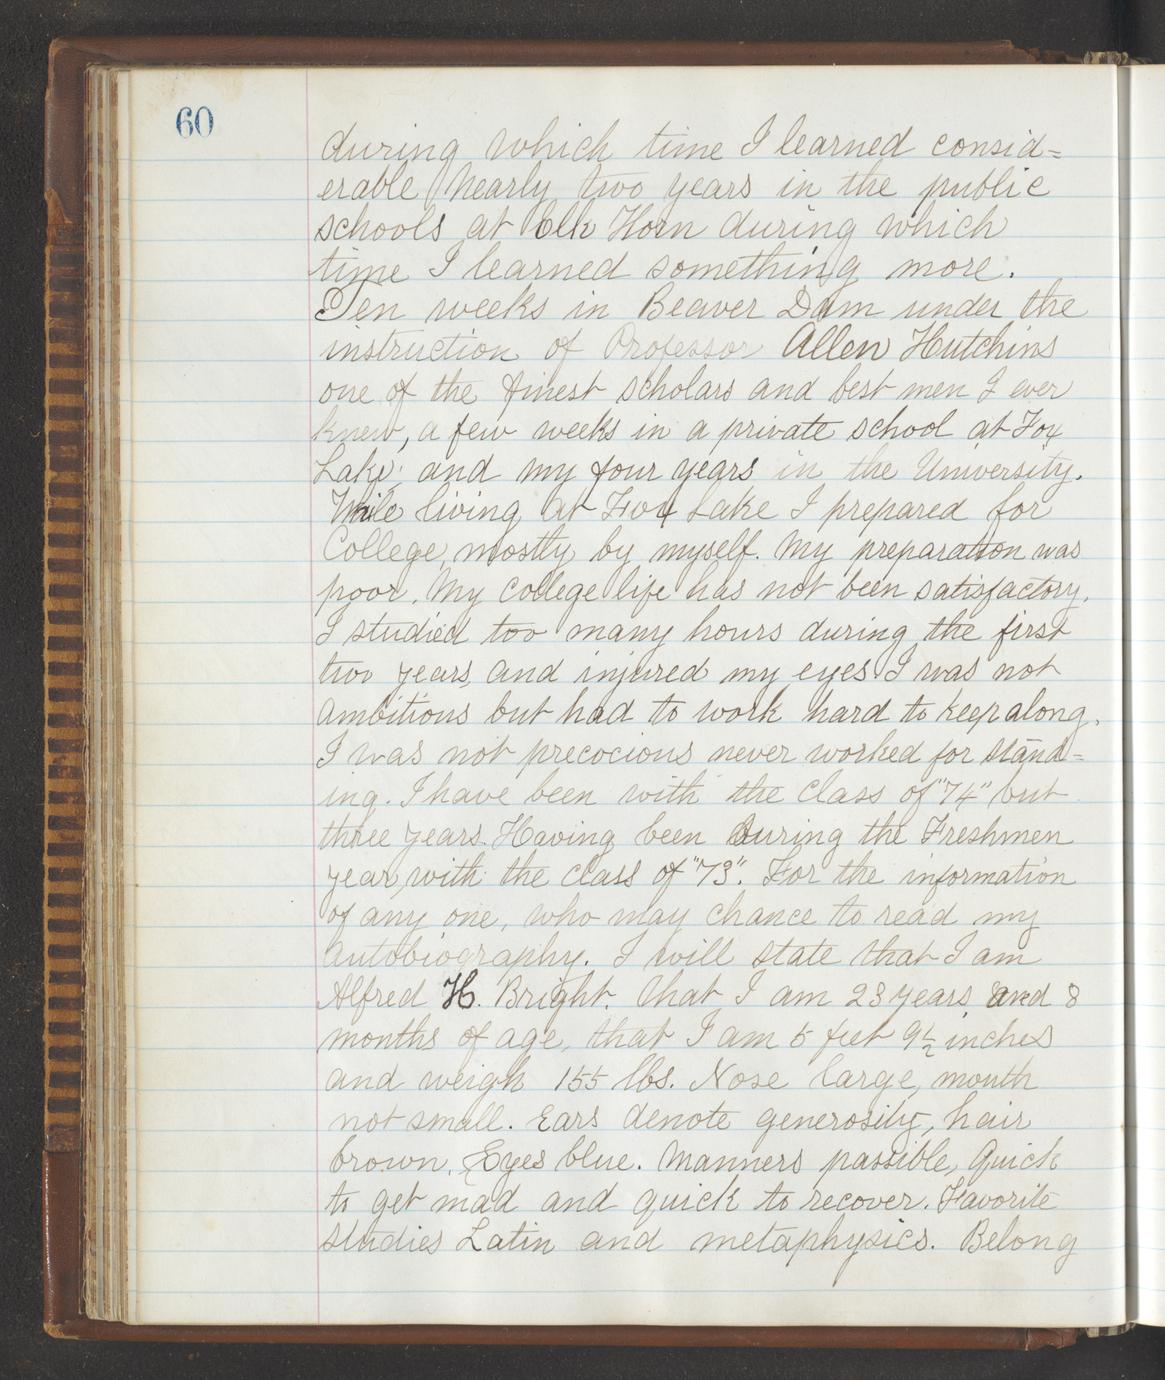 60
during which time I learned consid=
erable, Nearly two years in the public
schools at Elk Horn during which
time I learned something more.
Ten weeks in Beaver Dam under the
instruction of Professor Allen Hutchins
one of the finest scholars and best men I ever
knew, a few weeks in a private school at Fox
Lake; and my four years in the University.
While living at Fox Lake I prepared for
College, mostly by myself. My preparation was
poor. My college life has not been satisfactory.
I studied too many hours during the first
two years and injured my eyes I was not
ambitious but had to work hard to keep along.
I was not precocious never worked for stand=
ing. I have been with the Class of "74" but
three years. Having been during the Freshmen
year, with the class of "73". For the information
of any one, who may chance to read my
autobiography. I will state that I am
Alfred H. Bright. That I am 23 years and 8
months of age, that I am 5 feet 9½ inches
and weigh 155 lbs. Nose large, mouth
not small. Ears denote generosity, hair
brown. Eyes blue. Manners passible, Quick
to get mad and quick to recover. Favorite
studies Latin and metaphysics. Belong